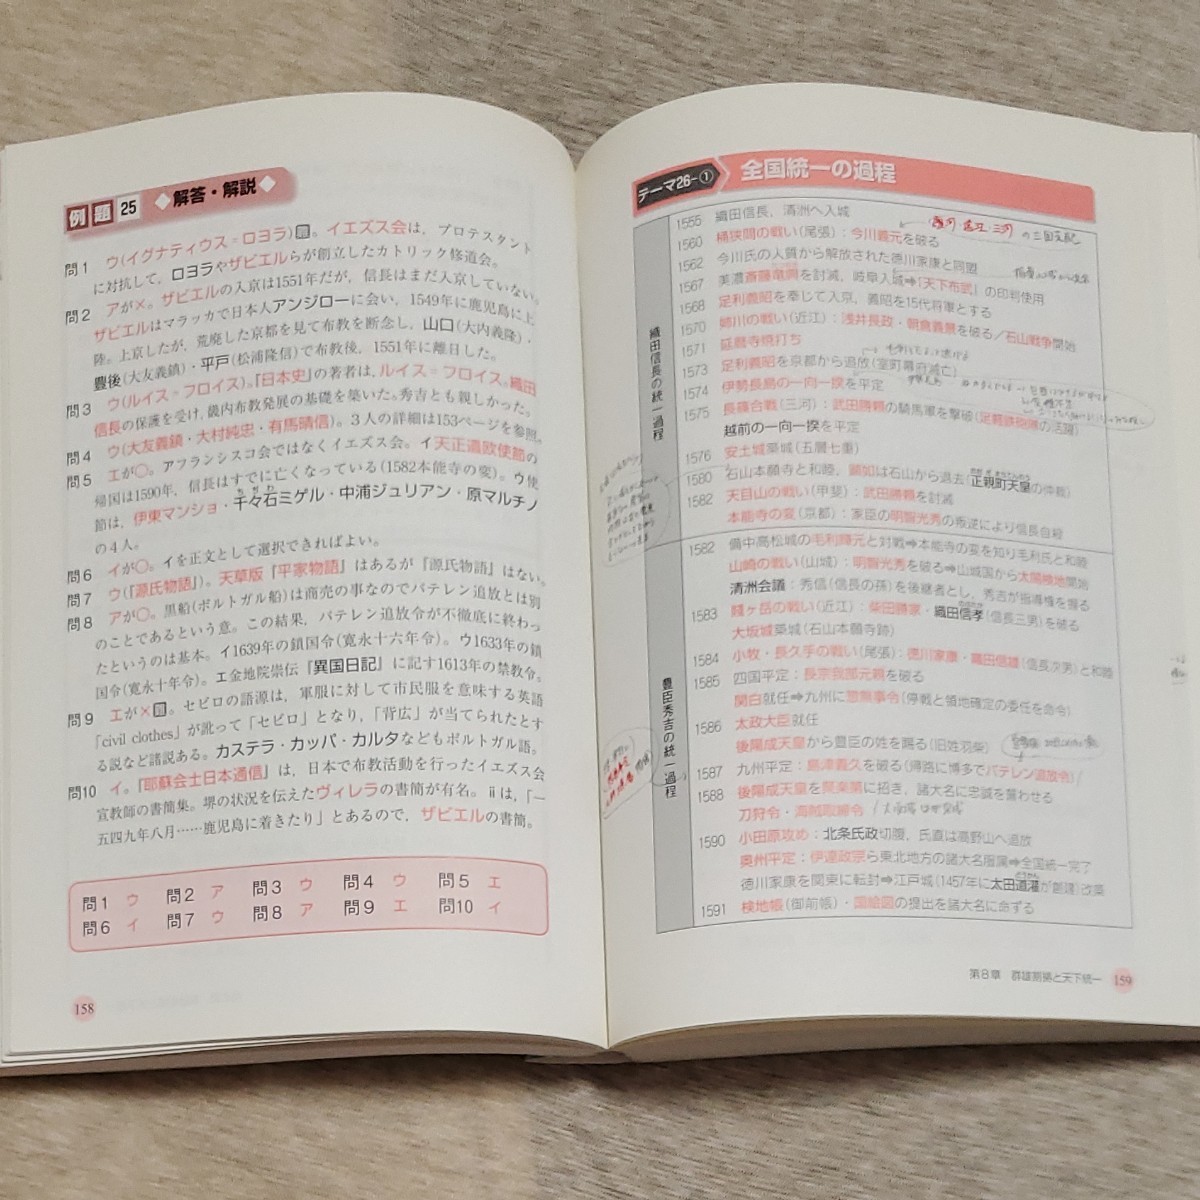 例題 25 ◆解答・解説◆
問1 ウ(イグナティウス=ロヨラ)難。イエズス会は，プロテスタント
に対抗して，ロヨラやザビエルらが創立したカトリック修道会。
問2 アが×。ザビエルの入京は1551年だが，信長はまだ入京していない。
ザビエルはマラッカで日本人アンジローに会い，1549年に鹿児島に上
陸。上京したが，荒廃した京都を見て布教を断念し，山口(大内義隆)・
豊後(大友義鎮)・平戸(松浦隆信)で布教後，1551年に離日した。
問3 ウ(ルイス=フロイス)。『日本史』の著者は，ルイス=フロイス。織田
信長の保護を受け，畿内布教発展の基礎を築いた。秀吉とも親しかった。
問4 ウ(大友義鎮・大村純忠・有馬晴信)。3人の詳細は153ページを参照。
問5 エが○。アフランシスコ会ではなくイエズス会。イ天正遣欧使節の
帰国は1590年，信長はすでに亡くなっている(1582本能寺の変)。ウ使
節は，伊東マンショ・千々石ミゲル・中浦ジュリアン・原マルチノ
の4人。
問6 イが○。イを正文として選択できればよい。
問7 ウ(『源氏物語』)。天草版『平家物語』はあるが『源氏物語』はない。
問8 アが○。黒船(ポルトガル船)は商売の事なのでバテレン追放とは別
のことであるという意。この結果，バテレン追放令が不徹底に終わっ
たというのは基本。イ1639年の鎖国令(寛永十六年令)。ウ1633年の鎖
国令(寛永十年令)。エ金地院崇伝『異国日記』に記す1613年の禁教令。
問9 エが×難。セビロの語源は，軍服に対して市民服を意味する英語
「civil clothes」が訛って「セビロ」となり，「背広」が当てられたとす
る説など諸説ある。カステラ・カッパ・カルタなどもポルトガル語。
問10 イ。『耶蘇会士日本通信』は，日本で布教活動を行ったイエズス会
宣教師の書簡集。堺の状況を伝えたヴィレラの書簡が有名。iiは，「一
五四九年八月……鹿児島に着きたり」とあるので，ザビエルの書簡。
問1 ウ 問2 ア 問3 ウ 問4 ウ 問5 エ
問6 イ 問7 ウ 問8 ア 問9 エ 問10 イ
158
テーマ26-① 全国統一の過程
織田信長の統一過程
1555 織田信長，清洲へ入城
1560 桶狭間の戦い(尾張)：今川義元を破る
駿河・遠江・三河の三国支配
1562 今川氏の人質から解放された徳川家康と同盟
1567 美濃斎藤竜興を討滅，岐阜入城➡「天下布武」の印判使用
1568 足利義昭を奉じて入京，義昭を15代将軍とする
1570 姉川の戦い(近江)：浅井長政・朝倉義景を破る/石山戦争開始
1571 延暦寺焼打ち
1573 足利義昭を京都から追放(室町幕府滅亡)
1574 伊勢長島の一向一揆を平定
1575 長篠合戦(三河)：武田勝頼の騎馬軍を撃破(足軽鉄砲隊の活躍)
越前の一向一揆を平定
1576 安土城築城(五層七重)
1580 石山本願寺と和睦，顕如は石山から退去(正親町天皇の仲裁)
1582 天目山の戦い(甲斐)：武田勝頼を討滅
本能寺の変(京都)：家臣の明智光秀の叛逆により信長自殺
豊臣秀吉の統一過程
1582 備中高松城の毛利輝元と対戦➡本能寺の変を知り毛利氏と和睦
山崎の戦い(山城)：明智光秀を破る➡山城国から太閤検地開始
清洲会議：秀信(信長の孫)を後継者とし，秀吉が指導権を握る
1583 賤ヶ岳の戦い(近江)：柴田勝家・織田信孝(信長三男)を破る
大坂城築城(石山本願寺跡)
1584 小牧・長久手の戦い(尾張)：徳川家康・織田信雄(信長次男)と和睦
1585 四国平定：長宗我部元親を破る
関白就任➡九州に惣無事令(停戦と領地確定の委任を命令)
1586 太政大臣就任
後陽成天皇から豊臣の姓を賜る(旧姓羽柴)
1587 九州平定：島津義久を破る(帰路に博多でバテレン追放令)
1588 後陽成天皇を聚楽第に招き，諸大名に忠誠を誓わせる
刀狩令・海賊取締令
1590 小田原攻め：北条氏政切腹，氏直は高野山へ追放
奥州平定：伊達政宗ら東北地方の諸大名服属➡全国統一完了
徳川家康を関東に転封➡江戸城(1457年に太田道灌が創建)改築
1591 検地帳(御前帳)・国絵図の提出を諸大名に命ずる
第8章 群雄割拠と天下統一 159